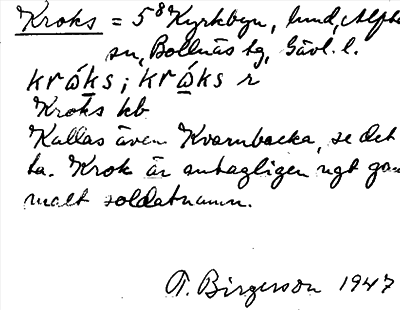 Kroks = 5⁸ Kyrkbyn, hmd, Alfta
sn, Bollnäs tg, Gävl. l.
krώ̲ks ; krώ̲ks r
Kroks hb
Kallas även Kvarnbacka, se det
ta. Krok är antagligen ngt gam
malt soldatnamn.
T. Birgerson 1947